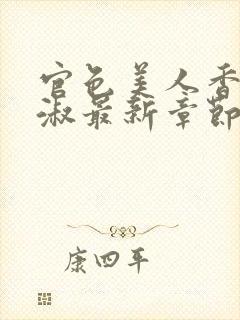 官色美人香
淑最新章節
康四平